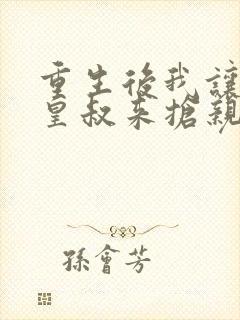 重生後我讓
皇叔來搶親
孫會芳